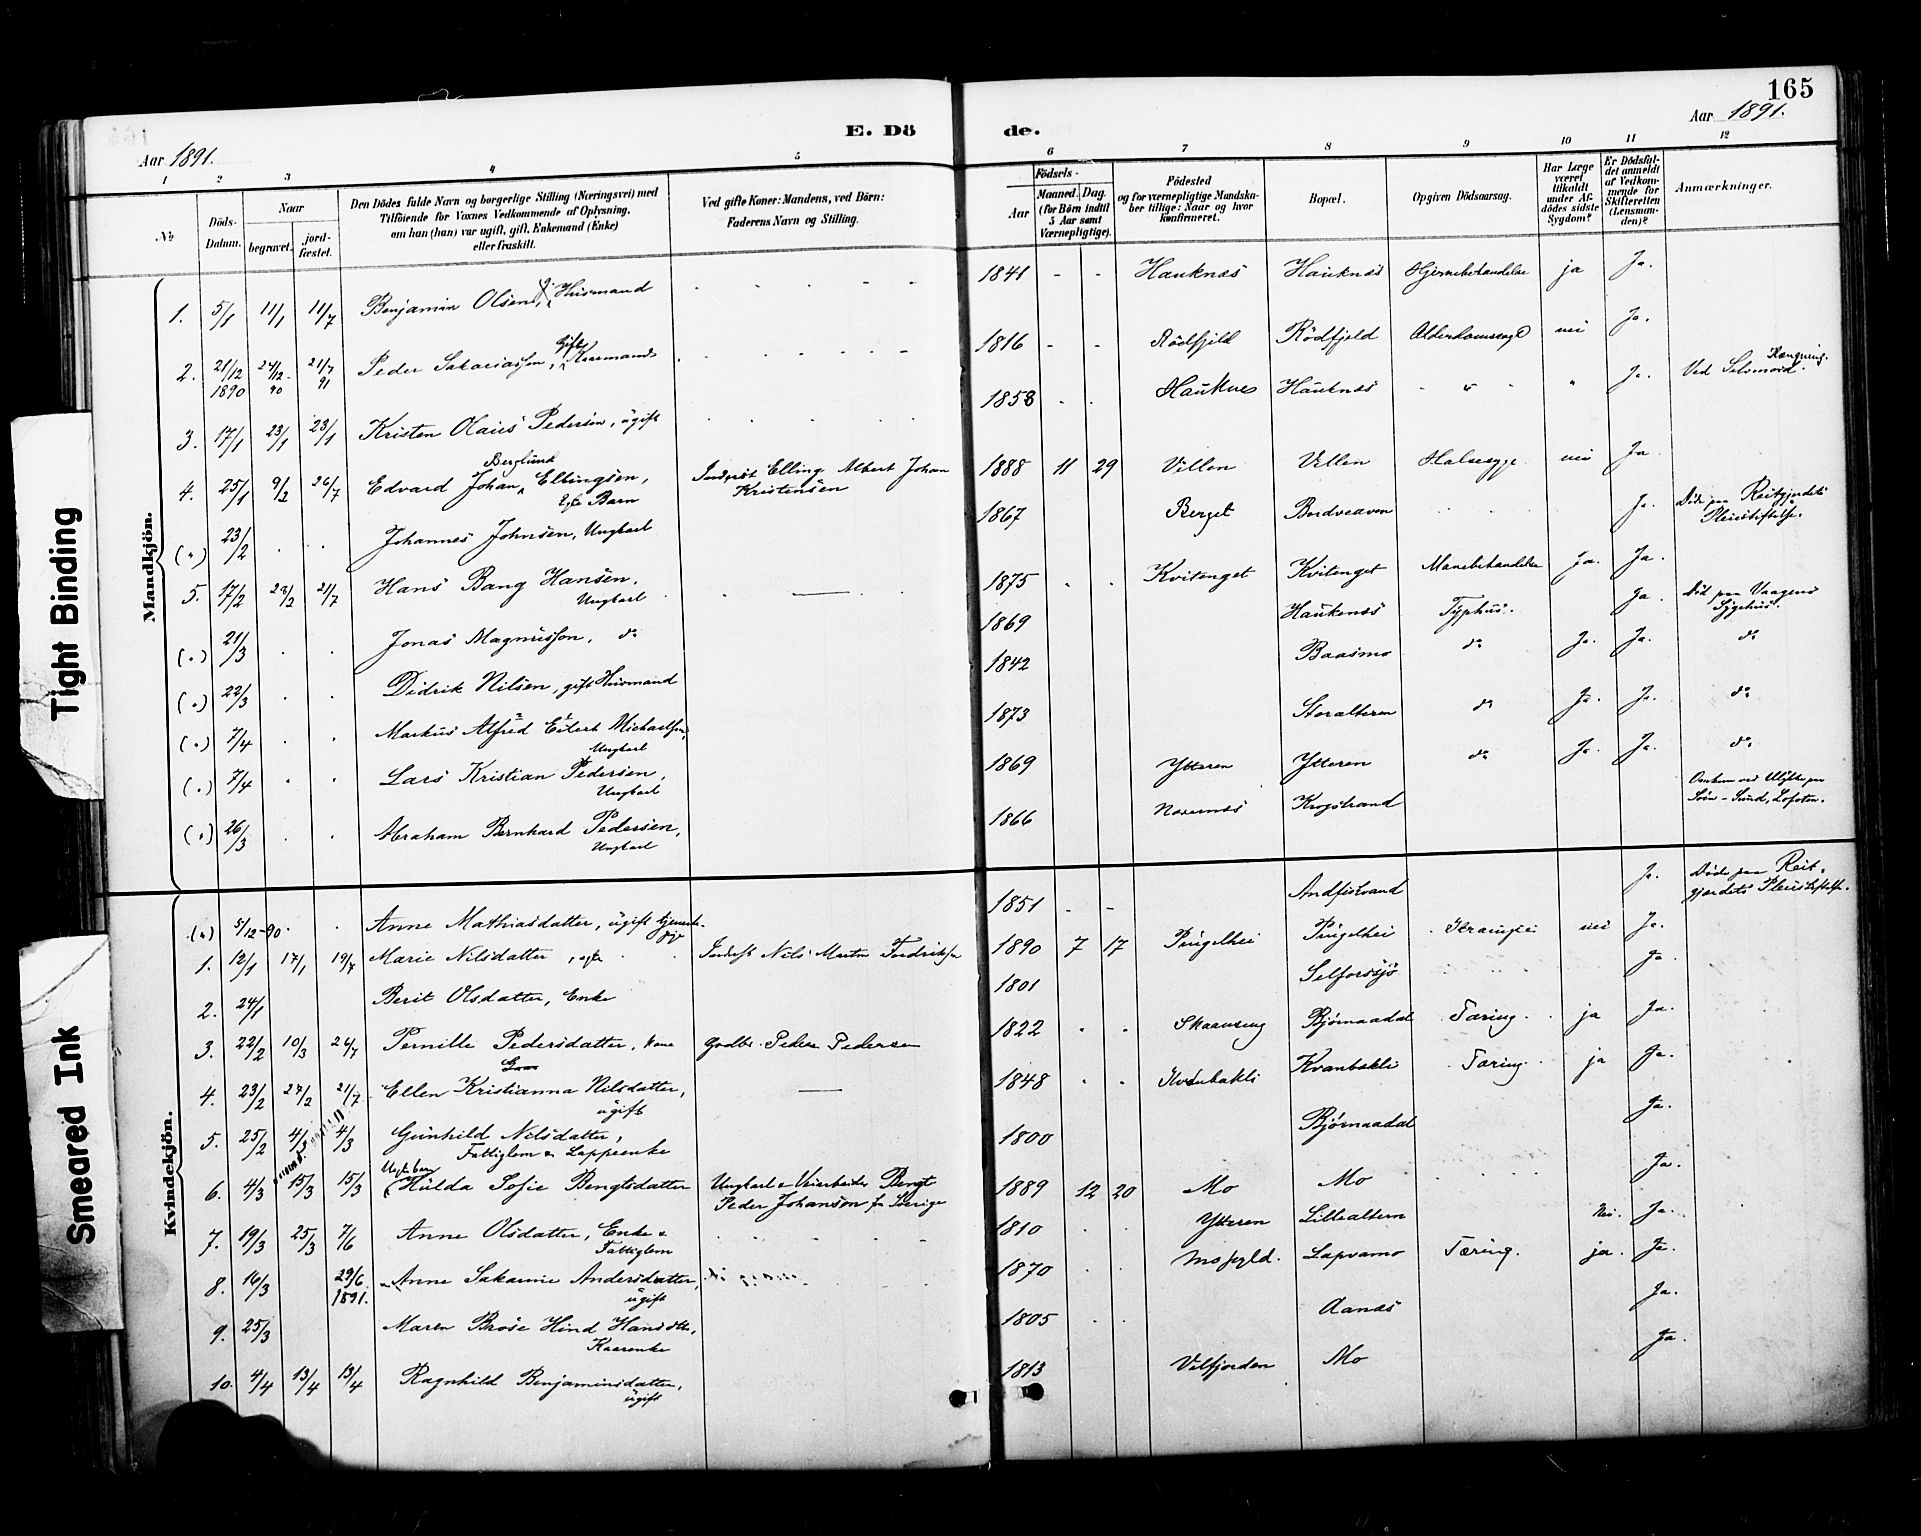 165
E. Döde.
Aar 1891.
Aar 1891.
1 2 3 4 5 6 7 8 9 10 11 12
No
Döds-Datum.
Naar
begravet.
jord-fæstet.
Den Dödes fulde Navn og borgerlige Stilling (Næringsvei) med
Tilföiende for Voxnes Vedkommende af Oplysning,
om han (hun) var ugift, gift, Enkemand (Enke)
eller fraskilt.
Ved gifte Koner: Mandens, ved Börn:
Faderens Navn og Stilling.
Födsels-
Aar
Maaned. Dag.
(for Börn indtil
5 Aar samt
Værnepligtige).
Födested
og for værnepligtige Mandska-
ber tillige: Naar og hvor
konfirmeret.
Bopæl.
Opgiven Dödsaarsag.
Har Læge
været
tilkaldt
under Af-
dödes sidste
Sygdom?
Er Dödsfal-
det anmeldt
af Vedkom-
mende for
Skifteretten
(Lensman-
den)?
Anmærkninger.
Mandkjön.
1. 5/1 11/1 11/7 Benjamin Olsen, Husmand 1841 - - Hauknæs Hauknæs Hjernebetændelse ja Ja.
2. 21/12 1890 24/12 90 21/7 91 Peder Sakariassen, Gift Kaarmand 1816 - - Rödfjeld Rödfjeld Alderdomssvagd nei Ja.
3. 17/1 23/1 23/1 Kristen Olaus Pedersen, ugift 1858 Hauknes Hauknæs " " Ja. Ved Selvmord. Hængning.
4. 25/1 9/2 26/7 Edvard Johan Berglund Ellingsen, Egte Barn Inderst Elling Albert Johan Kristensen 1888 11 29 Villen Villen Halsesyge nei Ja
(") 23/2 Johannes Johnsen, Ungkarl 1867 Berget Ja. Död paa Reitgjerdets Pleiestiftelse.
5. 17/2 28/2 21/7 Hans Bang Hansen, Ungkarl 1875 Kvitenget Kvitenget Mavebetændelse Ja. Ja.
(") 21/3 Jonas Magnussen, do 1869 Hauknæs Typhus. Ja. Död paa Vaagens Sygehus.
(") 22/3 Didrik Nilsen, gift Husmand 1842 Baasmo do Ja. Ja. do
(") 7/4 Markus Alfred Eilert Michaelsen, Ungkarl 1873 Storalteren do Ja. Ja. do
(") 7/4 Lars Kristian Pedersen, Ungkarl 1869 Ytteren Ytteren do Ja. Ja. do
(") 26/3 Abraham Bernhard Pedersen, Ungkarl 1866 Krogstrand Omkom ved Ulykke paa Söen - Sund, Lofoten.
Kvindekjön.
(") 5/12-90 Anne Mathiasdatter, ugift tjenestepige 1851 - - Andfiskvand Ja. Död paa Reitgjerdets Pleiestiftelse.
1. 12/1 17/1 19/7 Marie Nilsdatter, egte Inderst Nils Martin Fredriksen 1890 7 17 Pugelhei Pugelhei nei Ja.
2. 24/1 Berit Olsdatter, Enke 1801 Selforssjö Ja.
3. 22/2 10/3 26/7 Pernille Pedersdatter, Kone Gaardbr. Peder Pedersen 1822 Skaanseng Bjørnaadal Tæring. ja Ja.
4. 23/2 27/2 21/7 Ellen Kristianna Nilsdatter, ugift 1848 Kvanbakli Kvanbakli Tæring ja Ja.
5. 25/2 4/3 4/3 Gunhild Nilsdatter, Fattiglem & Lappeenke 1800 Bjørnaadal Ja.
6. 4/3 15/3 15/3 Uægte barn Hulda Sofie Bengtsdatter Ungkarl & Veiarbeider Bengt Peder Johanson fra Sverige 1889 12 20 Mo Mo Ja.
7. 19/3 25/3 7/6 Anne Olsdatter, Enke & Fattiglem 1810 Ytteren Lillealteren Nei. Ja.
8. 16/3 29/6 1891. Anne Sakarine Andersdatter, ugift 1870 Mofjeld. Lapvamo Tæring. ja. Ja.
9. 25/3 Maren Brose Hind Hansdtr, Kaarenke 1805 Aanæs Ja.
10. 4/4 13/4 13/4 Ragnhild Benjaminsdatter, ugift 1813 Velfjorden Mo Ja.
Tight Binding
Smeared Ink